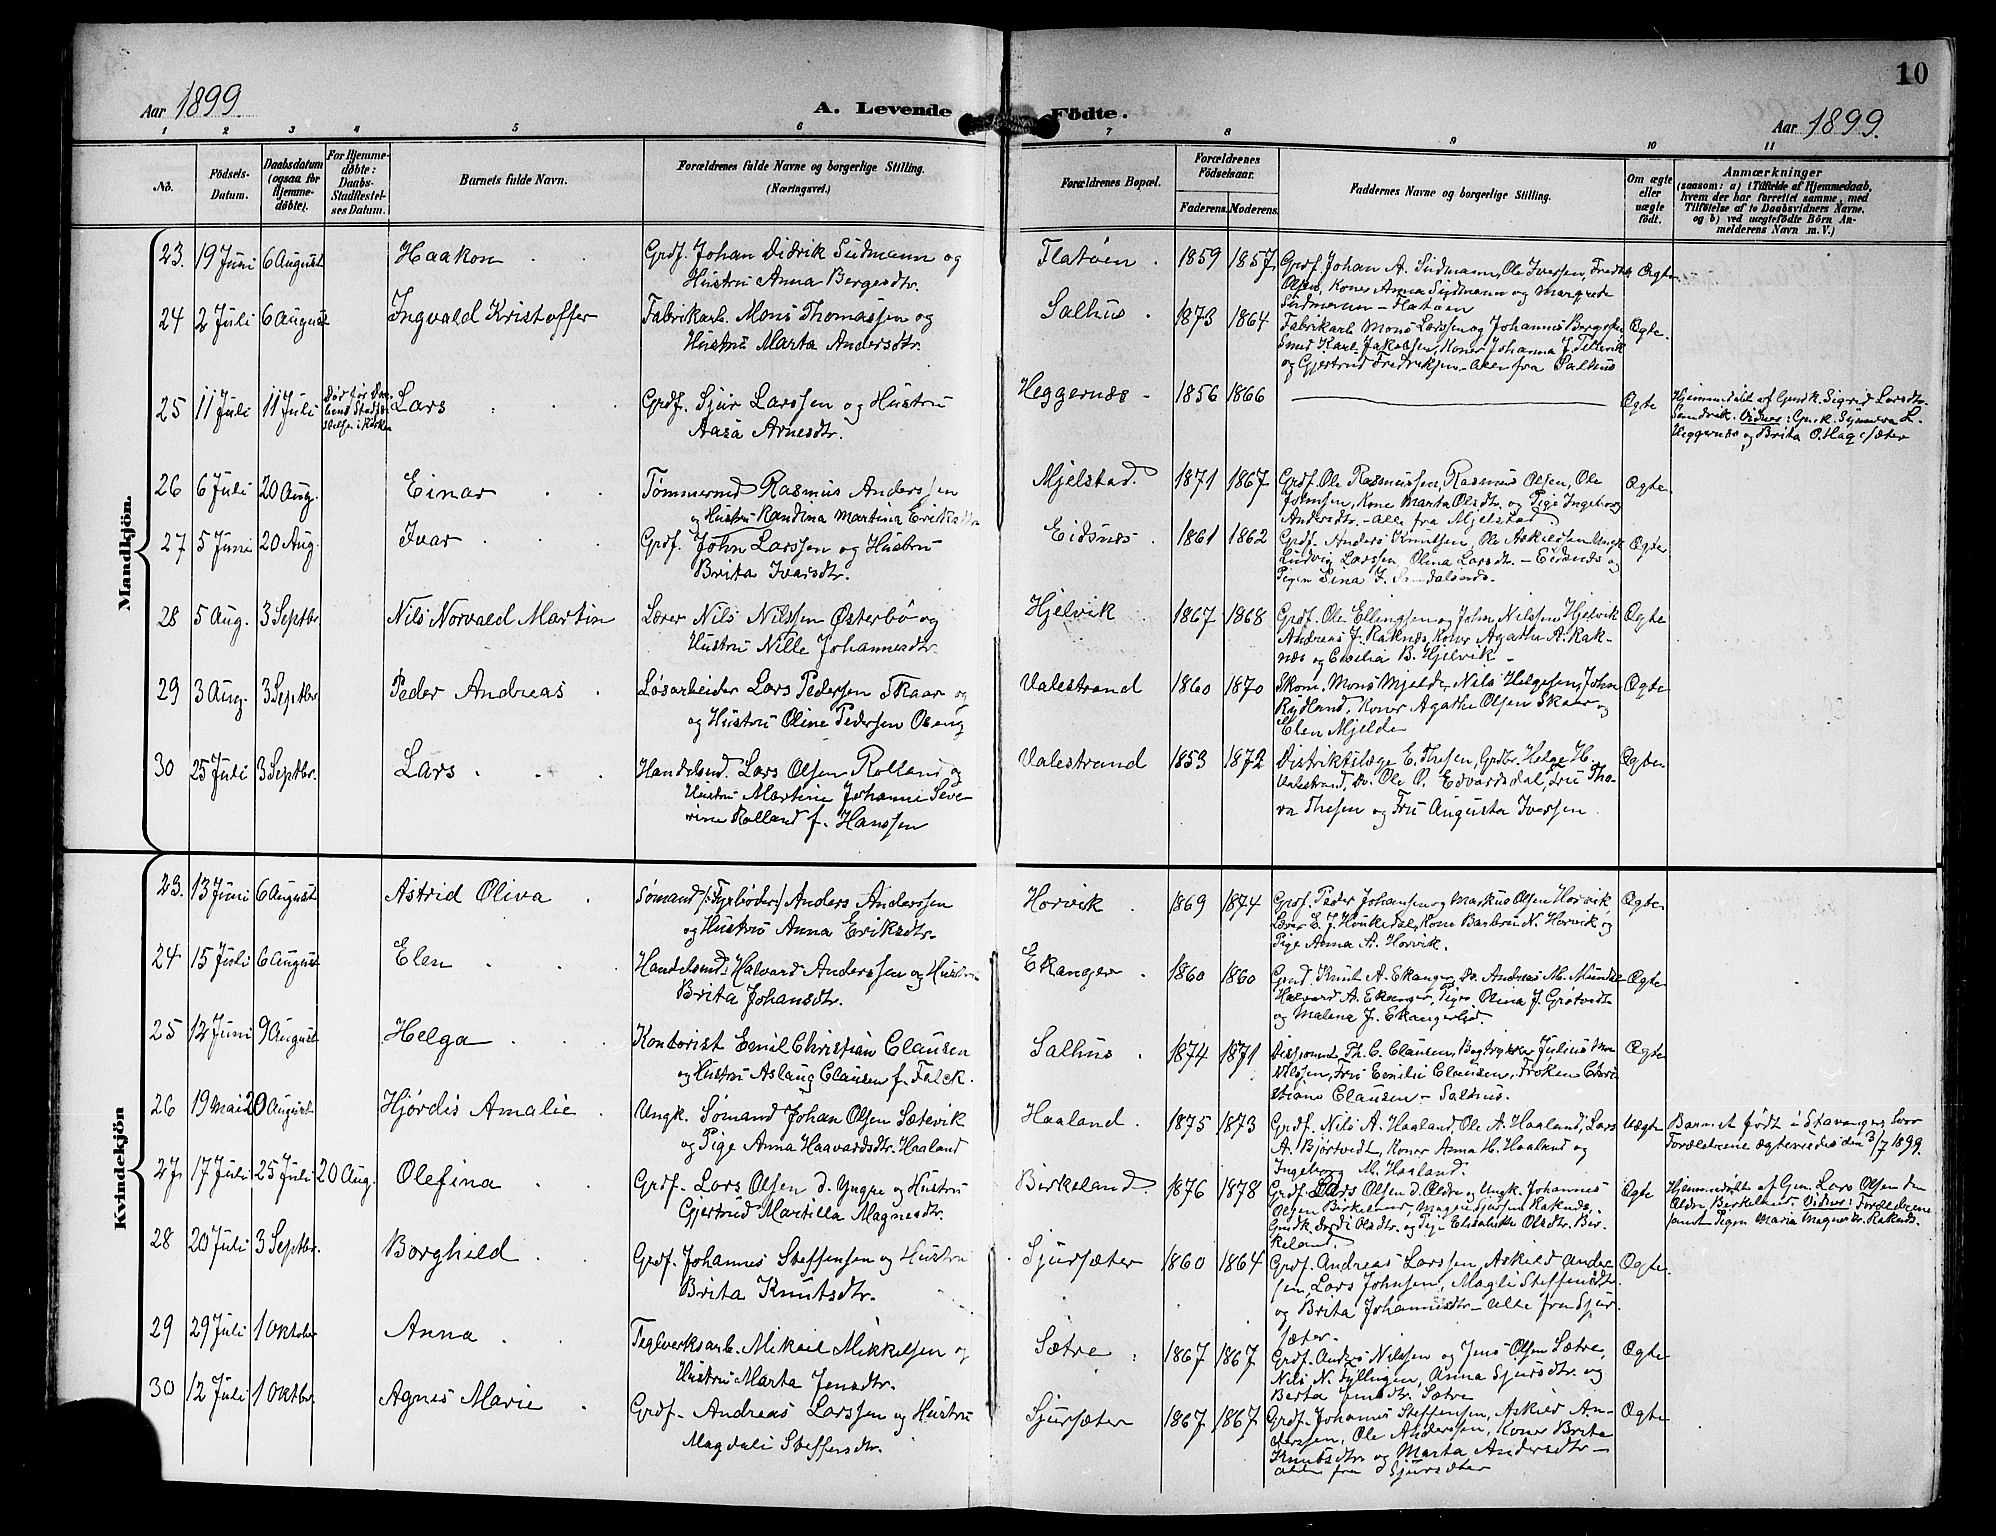 10
Aar 1899.
A. Levende Födte.
Aar 1899.
1 2 3 4 5 6 7 8 9 10 11
No.
Födsels-
Datum.
Daabsdatum
(ogsaa for
Hjemme-
døbte).
For Hjemme-
døbte:
Daabs-
Stadfæstel-
ses Datum.
Barnets fulde Navn.
Forældrenes fulde Navne og borgerlige Stilling.
(Næringsvei.)
Forældrenes Bopæl.
Forældrenes
Fødselsaar.
Faderens. Moderens.
Faddernes Navne og borgerlige Stilling.
Om ægte
eller
uægte
født.
Anmærkninger
(saasom: a) i Tilfælde af Hjemmedaab,
hvem der har forrettet samme, med
Tilføielse af to Daabsvidners Navne.
og b) ved uægtefødte Börn An-
melderens Navn m. V.)
Mandkjön.
23. 19 Juni 6 August Haakon Grdf. Johan Didrik Sudmann og
Hustru Anna Bergesdtr.
Flatøen 1859 1857 Grdf. Johan A. Sudmann, Ole Iversen, Fredrik Ægte
Olsen, Koner Anna Sudmann og Margrete
Sudmann - Flatøen
24 2 Juli 6 August Ingvald Kristoffer Fabrikarb. Mons Thomassen og
Hustru Marta Andersdtr.
Salhus 1873 1864 Fabrikarb. Mons Larssen og Johannes Bergesen Ægte
Smed Karl Jakobsen, Koner Johanna J.
og Gjertrud Fredriksen - alle fra Salhus
25 11 Juli 11 Juli Død før Daa-
bens Stadfæ-
stelse i Kirken
Lars Grdf. Sjur Larssen og Hustru
Aasa Arnesdtr.
Heggernæs 1856 1866 Ægte
Hjemmedøbt af Gmdk. Sigrid Larsdtr.
Sandvik. Vidner: Gmk. Synneva L.
Heggernæs og Brita O. Hagesæter
26 6 Juli 20 Aug. Einar Tømmermd Rasmus Anderssen
og Hustru Randina Martina Eriksdtr.
Mjelstad 1871 1867 Grdf. Ole Rasmussen, Rasmus Olsen, Ole Ægte
Johnsen, Kone Marta Olsdtr. og Pige Ingeborg
Andersdtr. - alle fra Mjelstad.
27 5 Juni 20 Aug. Ivar Grdf. John Larssen og Hustru
Brita Ivarsdtr.
Eidsnes 1861 1862 Grdf. Anders Knutsen, Ole Askildsen Ungk. Ægte
Ludvig Larssen, Olina Larsdtr. - Eidsnes og
Pigen Lina J.
28 5 Aug. 3 Septbr. Nils Norvald Martin Lærer Nils Nilssen Østerbø og
Hustru Nille Johannesdtr.
Hjelvik 1867 1868 Grdf. Ole Ellingsen og John Nilssen Hjelvik Ægte
Andreas J. Raknæs, Koner Agathe A. Rak-
næs og Cecilia B. Hjelvik
29 3 Aug. 3 Septbr Peder Andreas Løsarbeider Lars Pedersen Skaar og
og Hustru Oline Pedersen
Valestrand 1860 1870 Skom. Mons Mjelde, Nils Helgesen, John Ægte
Rydland, Koner Agathe Olsen Skaar og
Elen Mjelde
30 25 Juli 3 Septbr. Lars Handelsmd. Lars Olsen Rolland og
Hustru Martine Johanne Seve-
rine Rolland f. Hanssen
Valestrand 1853 1872 Distriktslæge E. Thesen, Grdbr. Helge H. Ægte
Valestrand, Do. Ole O. Edvardsdal, Fru Tho-
ra Thesen og Fru Augusta Iversen
Kvindekjön
23. 13 Juni 6 August Astrid Oliva Sømand /: Fyrbøder :/ Anders Anderssen
og Hustru Anna Eriksdtr.
Horvik 1869 1874 Grdf. Peder Johansen og Markus Olsen Horvik, Ægte
Lærer L. J. Houkedal, Kone Barbru N. Horvik og
Pige Anna A. Horvik.
24 15 Juli 6 August Elen Handelsmd. Halvard Anderssen og Hustru
Brita Johansdtr.
Ekanger 1860 1860 Gmd. Knut A. Ekanger, Do. Andreas M. Mundal Ægte
Halvard A. Ekanger, Pigen Olina J. Grøtvedt
og Malena J. Ekangerlid.
25 12 Juni 9 August Helga Kontorist Emil Christian Clausen
og Hustru Aslaug Clausen f. Falck.
Salhus 1874 1871 Disponent Th. C. Clausen, Bogtrykker Julius Ægte
Nilssen, Fru Emilie Clausen, Frøken Chri-
stiane Clausen - Salhus.
26 19 Mai 20 August Hjørdis Amalie Ungk. Sømand Johan Olsen Sætevik
og Pige Anna Haavardsdtr. Haaland
Haaland 1875 1873 Grdf. Nils A. Haaland, Ole A. Haaland, Lars Uægte
A. Bjørtvedt, Koner Anna H. Haaland og
Ingeborg M. Haaland.
Barnet født i Stavanger, hvor
Forældrene ægteviedes den 3/7 1899.
27. 17 Juli 25 Juli 20 Aug. Olefina Grdf. Lars Olsen d. Yngre og Hustru
Gjertrud Martilla Magnesdtr.
Birkeland 1876 1878 Grdf. Lars Olsen d. Ældre og Ungk. Johannes Ægte
Olsen Birkeland, Magne Raknæs,
Gmdk. Olsdtr. og Pige Elisabeth Olsdtr. Bir-
keland.
Hjemmedøbt af Gm. Lars Olsen den
Ældre Birkeland. Vidner: Forældrene
samt Pigen Maria Magnesdtr. Raknæs.
28 20 Juli 3 Septbr. Borghild Grdf. Johannes Steffensen og Hustru
Brita Knutsdtr.
Sjursæter 1860 1864 Grdf. Andreas Larssen, Askild Ander- Ægte
sen, Lars Johnsen, Magli Steffensdtr.
og Brita Johannesdtr. - alle fra Sjur-
sæter.
29 29 Juli 1 Oktober Anna Teglverksarb. Mikael Mikkelsen og
Hustru Marta Jensdtr.
Sætre 1867 1867 Grdf. Anders Nilssen og Jens Olsen Sætre, Ægte
Nils N. Fyllingen, Anna Sjursdtr. og
Berta Jensdtr. Sætre
30 12 Juli 1 Oktbr. Agnes Marie Grdf. Andreas Larssen og Hustru
Magdali Steffensdtr.
Sjursæter 1867 1867 Grdf. Johannes Steffensen, Askild An- Ægte
derssen, Ole Anderssen, Koner Brita
Knutsdtr. og Marta Andersdtr. -
alle fra Sjursæter